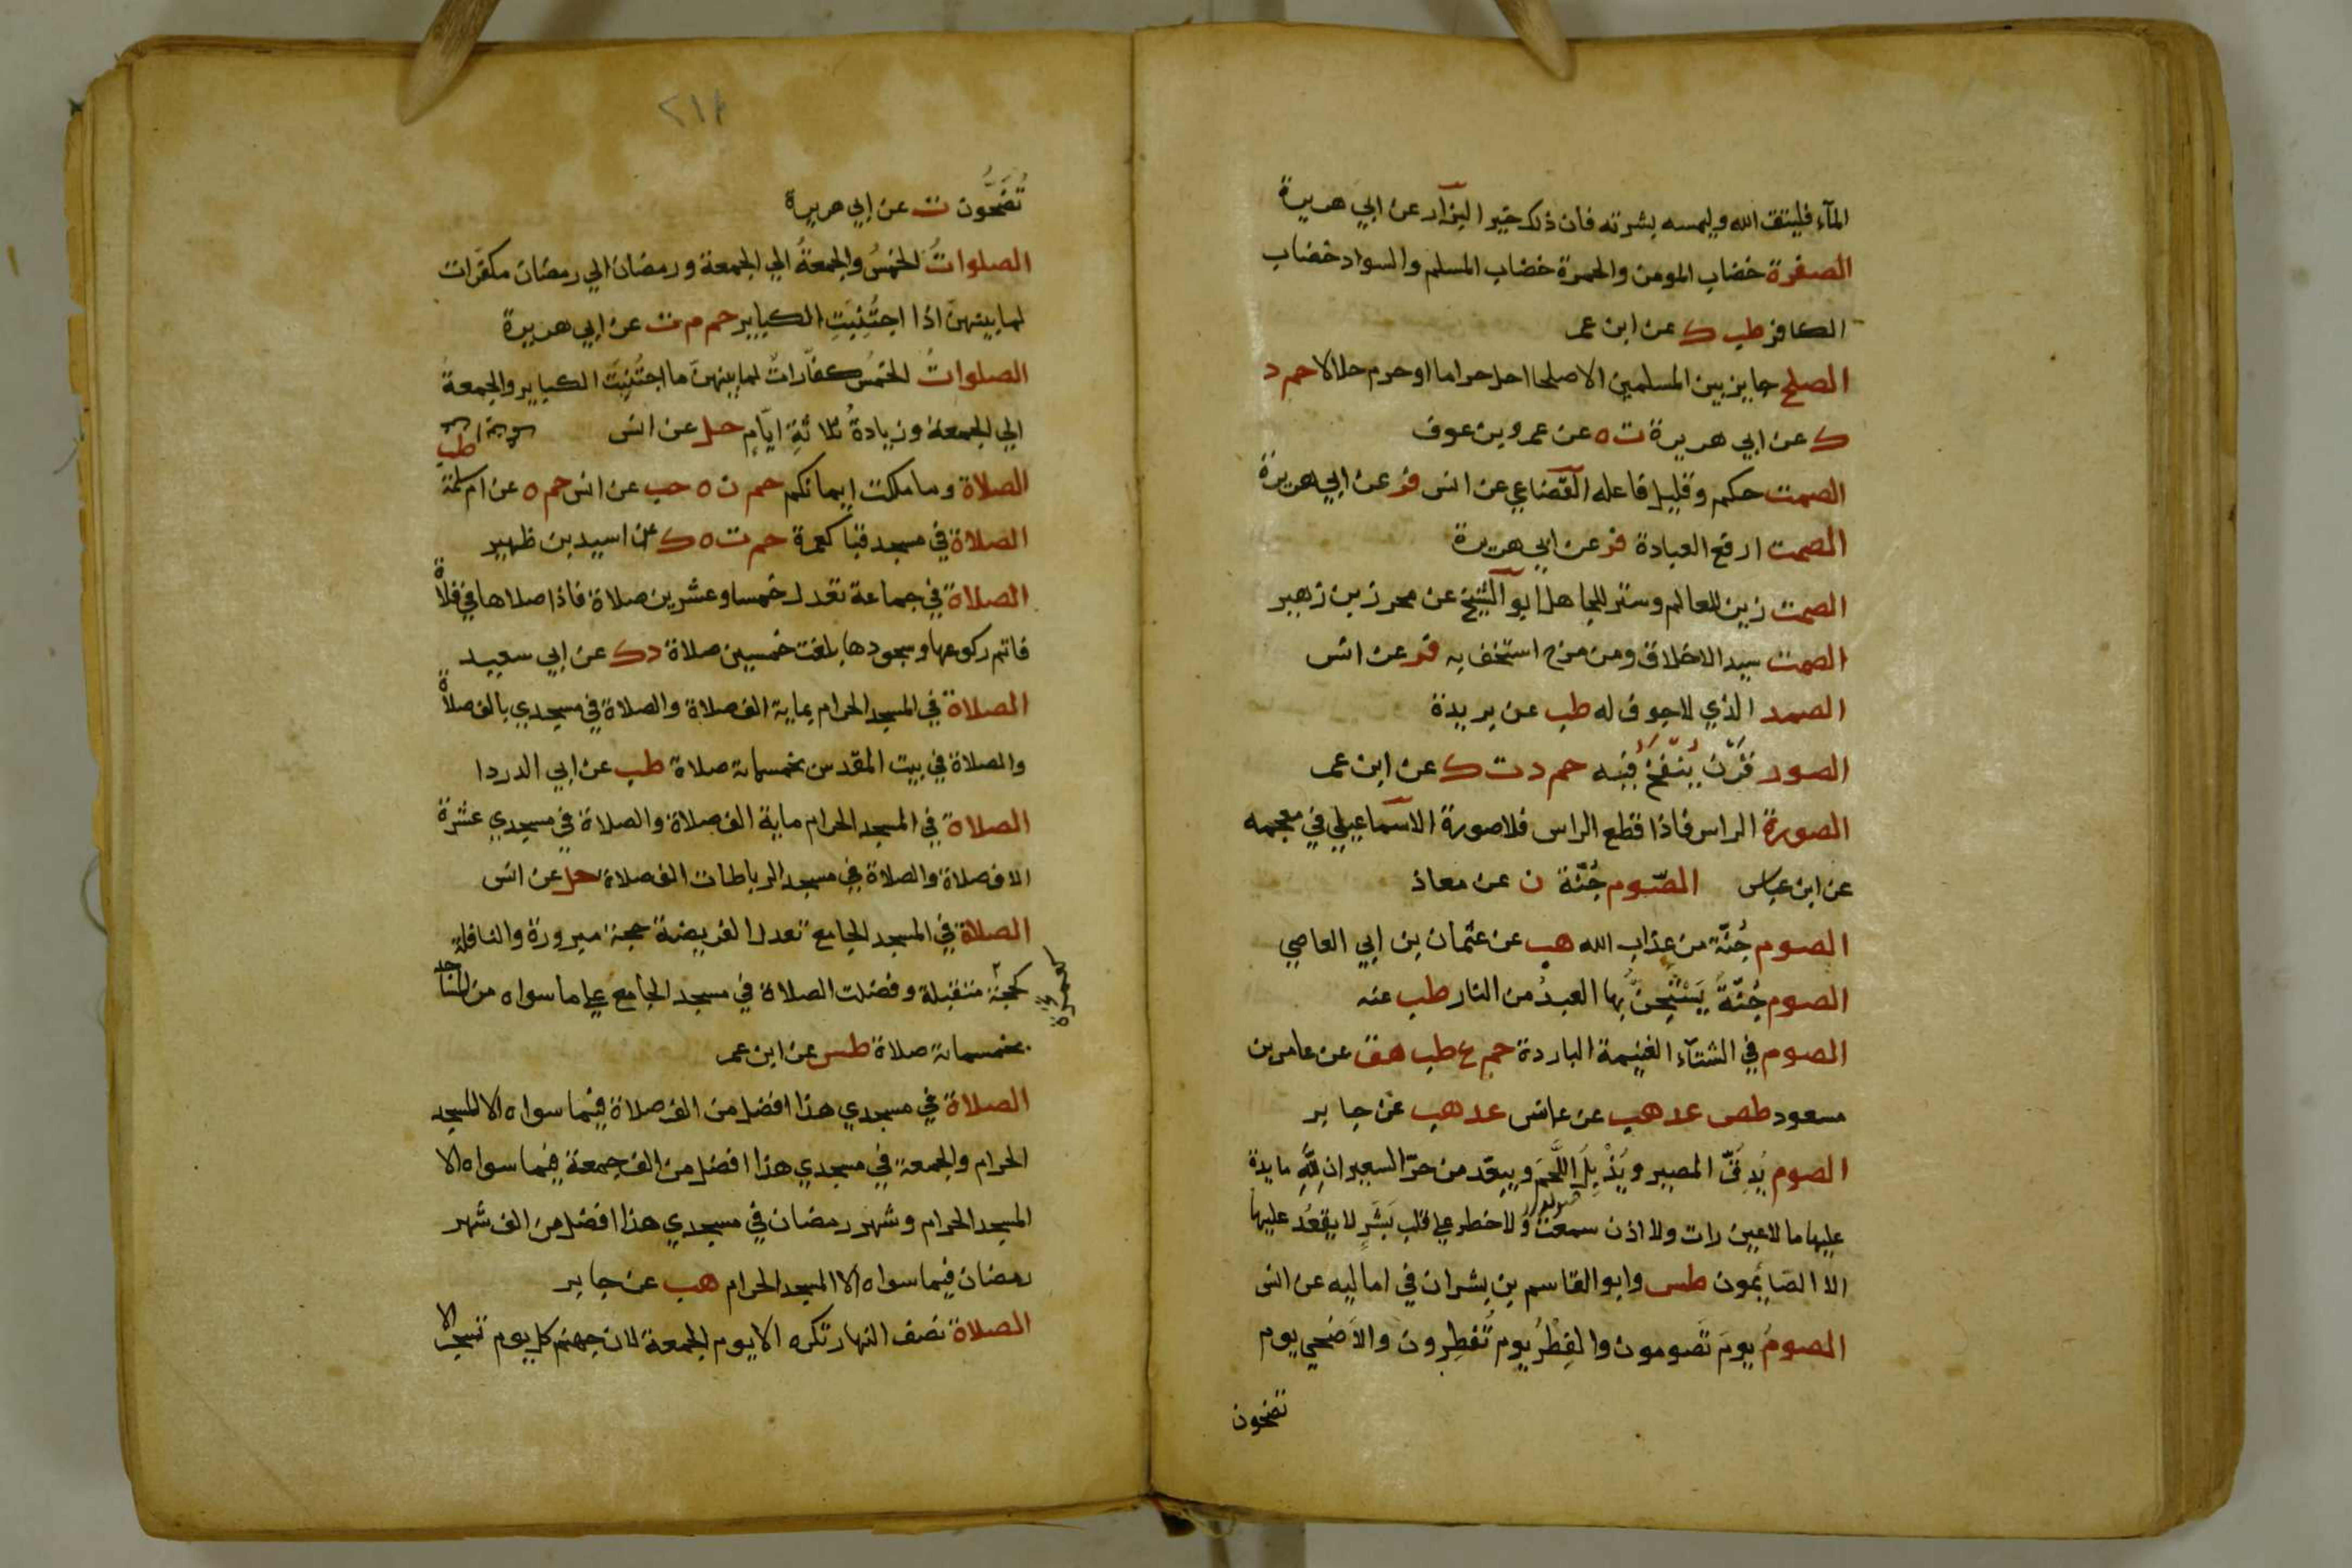 المآء فليتق الله وليمسه بشرته فان ذلك خير البزآر عن ابي هريرة
الصفرة خضاب المومن والحمرة خضاب المسلم والسواد خضاب
الكافر طب ك عن ابن عمر
الصلح جايز بين المسلمين الاصلحا احل حراما او حرم حلالا حم د
ك عن ابي هريرة ت ه عن عمرو بن عوف
الصمت حكم وقليل فاعله القضاعي عن انس فر عن ابي هريرة
الصمت ارفع العبادة فر عن ابي هريرة
الصمت زين للعالم وستر للجاهل ابو الشيخ عن محرز بن زهير
الصمت سيد الاخلاق ومن مزح استخف به فر عن انس
الصمد الذي لاجوف له طب عن بريدة
الصور قَرْن يُنْفَخ فيه حم د ت ك عن ابن عمر
الصورة الراس فاذا قطع الراس فلا صورة الاسماعيلي في معجمه
عن ابن عباس الصّوم جُنّة ن عن معاذ
الصوم جُنّة من عذاب الله هب عن عثمان بن ابي العاصي
الصوم جُنّةٌ يَسْتَجِنُّ بها العبدُ من النار طب عنه
الصوم في الشتآء الغنيمة الباردة حم ع طب هق عن عامر بن
مسعود طص عد هب عن عانس عد هب عن جابر
الصوم يُدِقّ المصير ويُذْبِلُ اللَّحمَ ويبعد من حرّ السعير ان لِلّهِ مايدة
عليها ما لاعين رات ولا اذن سمعت ولا خطر علي قلب بَشَرٍ لا يقعُد عليها
الا الصّايمون طس وابو القاسم بن بشران في اماليه عن انس
الصومُ يومَ تَصومون والفِطْرُ يوم تُفْطِرون والاَضحي يوم
تضحون
٢١٨
تُضَحُّون ت عن ابي هريرة
الصلواتُ الخمسُ والجمعةُ الي الجمعة ورمضان الي رمضان مكفّرات
لما بينهنّ اذا اجتُنِبَتِ الكباير حم م ت عن ابي هريرة
الصلواتُ الخمسُ كفّاراتٌ لما بينهنّ ما اجتُنِبَت الكباير والجمعةُ
الي الجمعة وزيادةُ ثلاثةِ ايّامٍ حل عن انس
طب
الصلاة وما ملكت ايمانكم حم ن ه حب عن انس حم ه عن ام سلمة
الصلاة في مسجد قبا كعمرة حم ت ه ك عن اسيد بن ظهير
الصلاة في جماعة تعدل خمسا وعشرين صلاة فاذا صلاها في فلاة
فاتم ركوعها وسجودها بلغت خمسين صلاة د ك عن ابي سعيد
الصلاة في المسجد الحرام بماية الف صلاة والصلاة في مسجدي بالف صلاة
والصلاة في بيت المقدس بخمسماية صلاة طب عن ابي الدردا
الصلاة في المسجد الحرام ماية الف صلاة والصلاة في مسجدي عشرة
الاف صلاة والصلاة في مسجد الرباطات الف صلاة حل عن انس
الصلاة في المسجد الجامع تعدل الفريضة حجة مبرورة والنافلة
كحجة متقبلة وفضلت الصلاة في مسجد الجامع علي ما سواه من المساجد
بخمسماية صلاة طس عن ابن عمر
الصلاة في مسجدي هذا افضل من الف صلاة فيما سواه الا المسجد
الحرام والجمعة في مسجدي هذا افضل من الف جمعة فيما سواه الا
المسجد الحرام وشهر رمضان في مسجدي هذا افضل من الف شهر
رمضان فيما سواه الا المسجد الحرام هب عن جابر
الصلاة نصف النهار تكره الا يوم الجمعة لان جهنم كل يوم تسجر الا